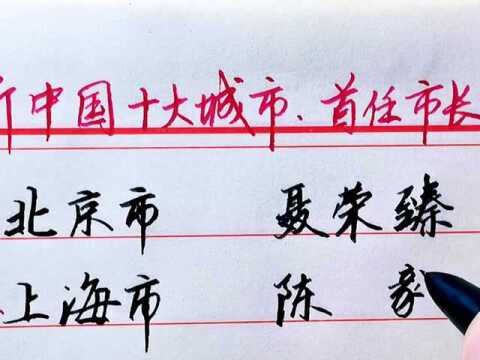 新中国十大城市、首任市长
北京市 聂荣臻
上海市 陈毅